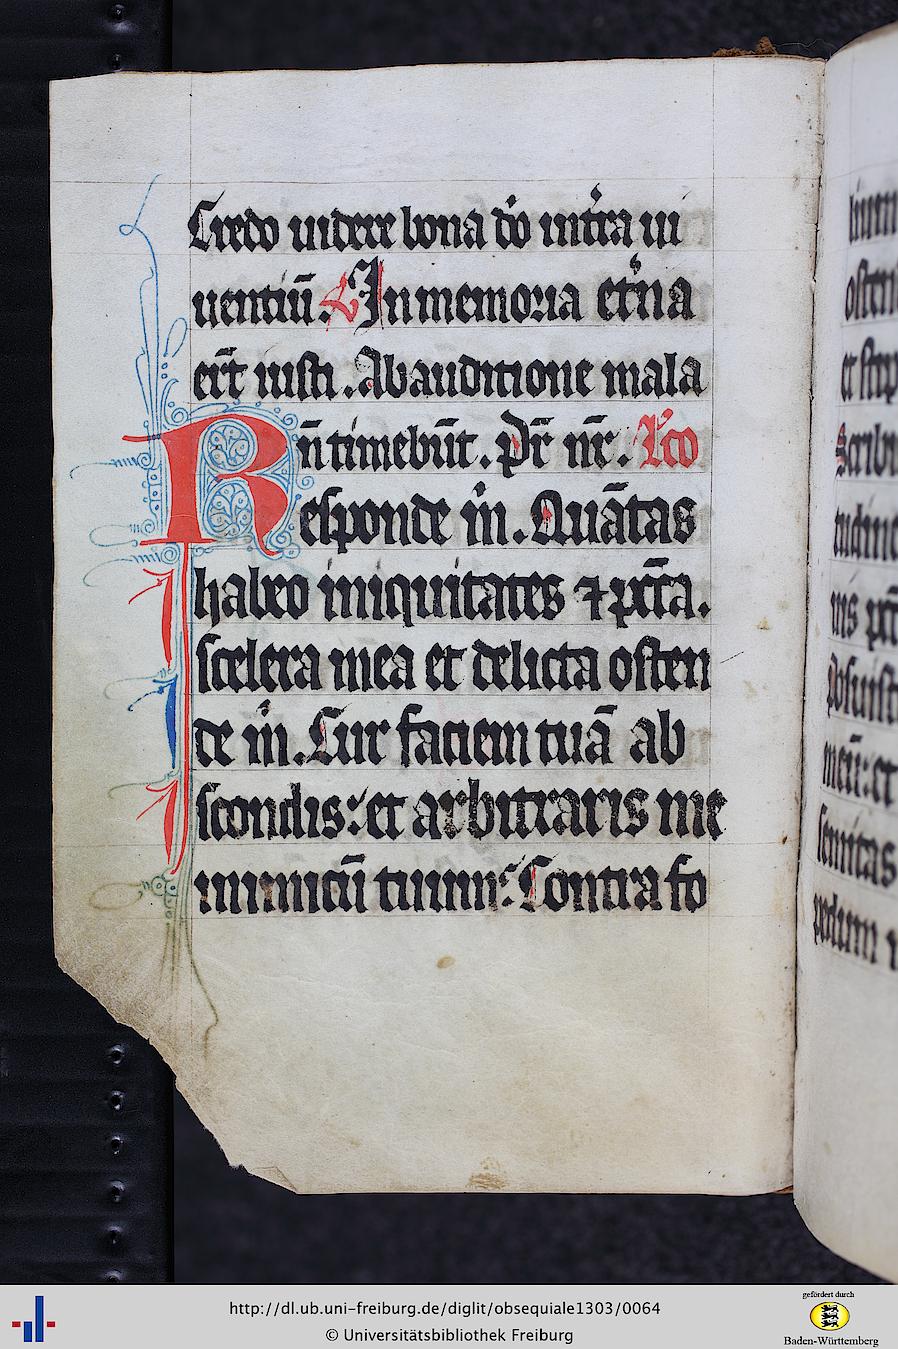 Credo uidere bona dn̄i in tr̄a ui
uentiū. V In memoria et̄na
erit iusti. Ab auditione mala
n̄ timebūt. Pr̄ nr̄. Lc̄o
Responde m̄. Quātas
habeo iniquitates ⁊ pc̄ta.
scelera mea et delicta osten
de m̄. Cur faciem tuā ab
scondis: et arbitraris me
inimicū tuum? Contra fo
http://dl.ub.uni-freiburg.de/diglit/obsequiale1303/0064
© Universitätsbibliothek Freiburg
gefördert durch
Baden-Württemberg